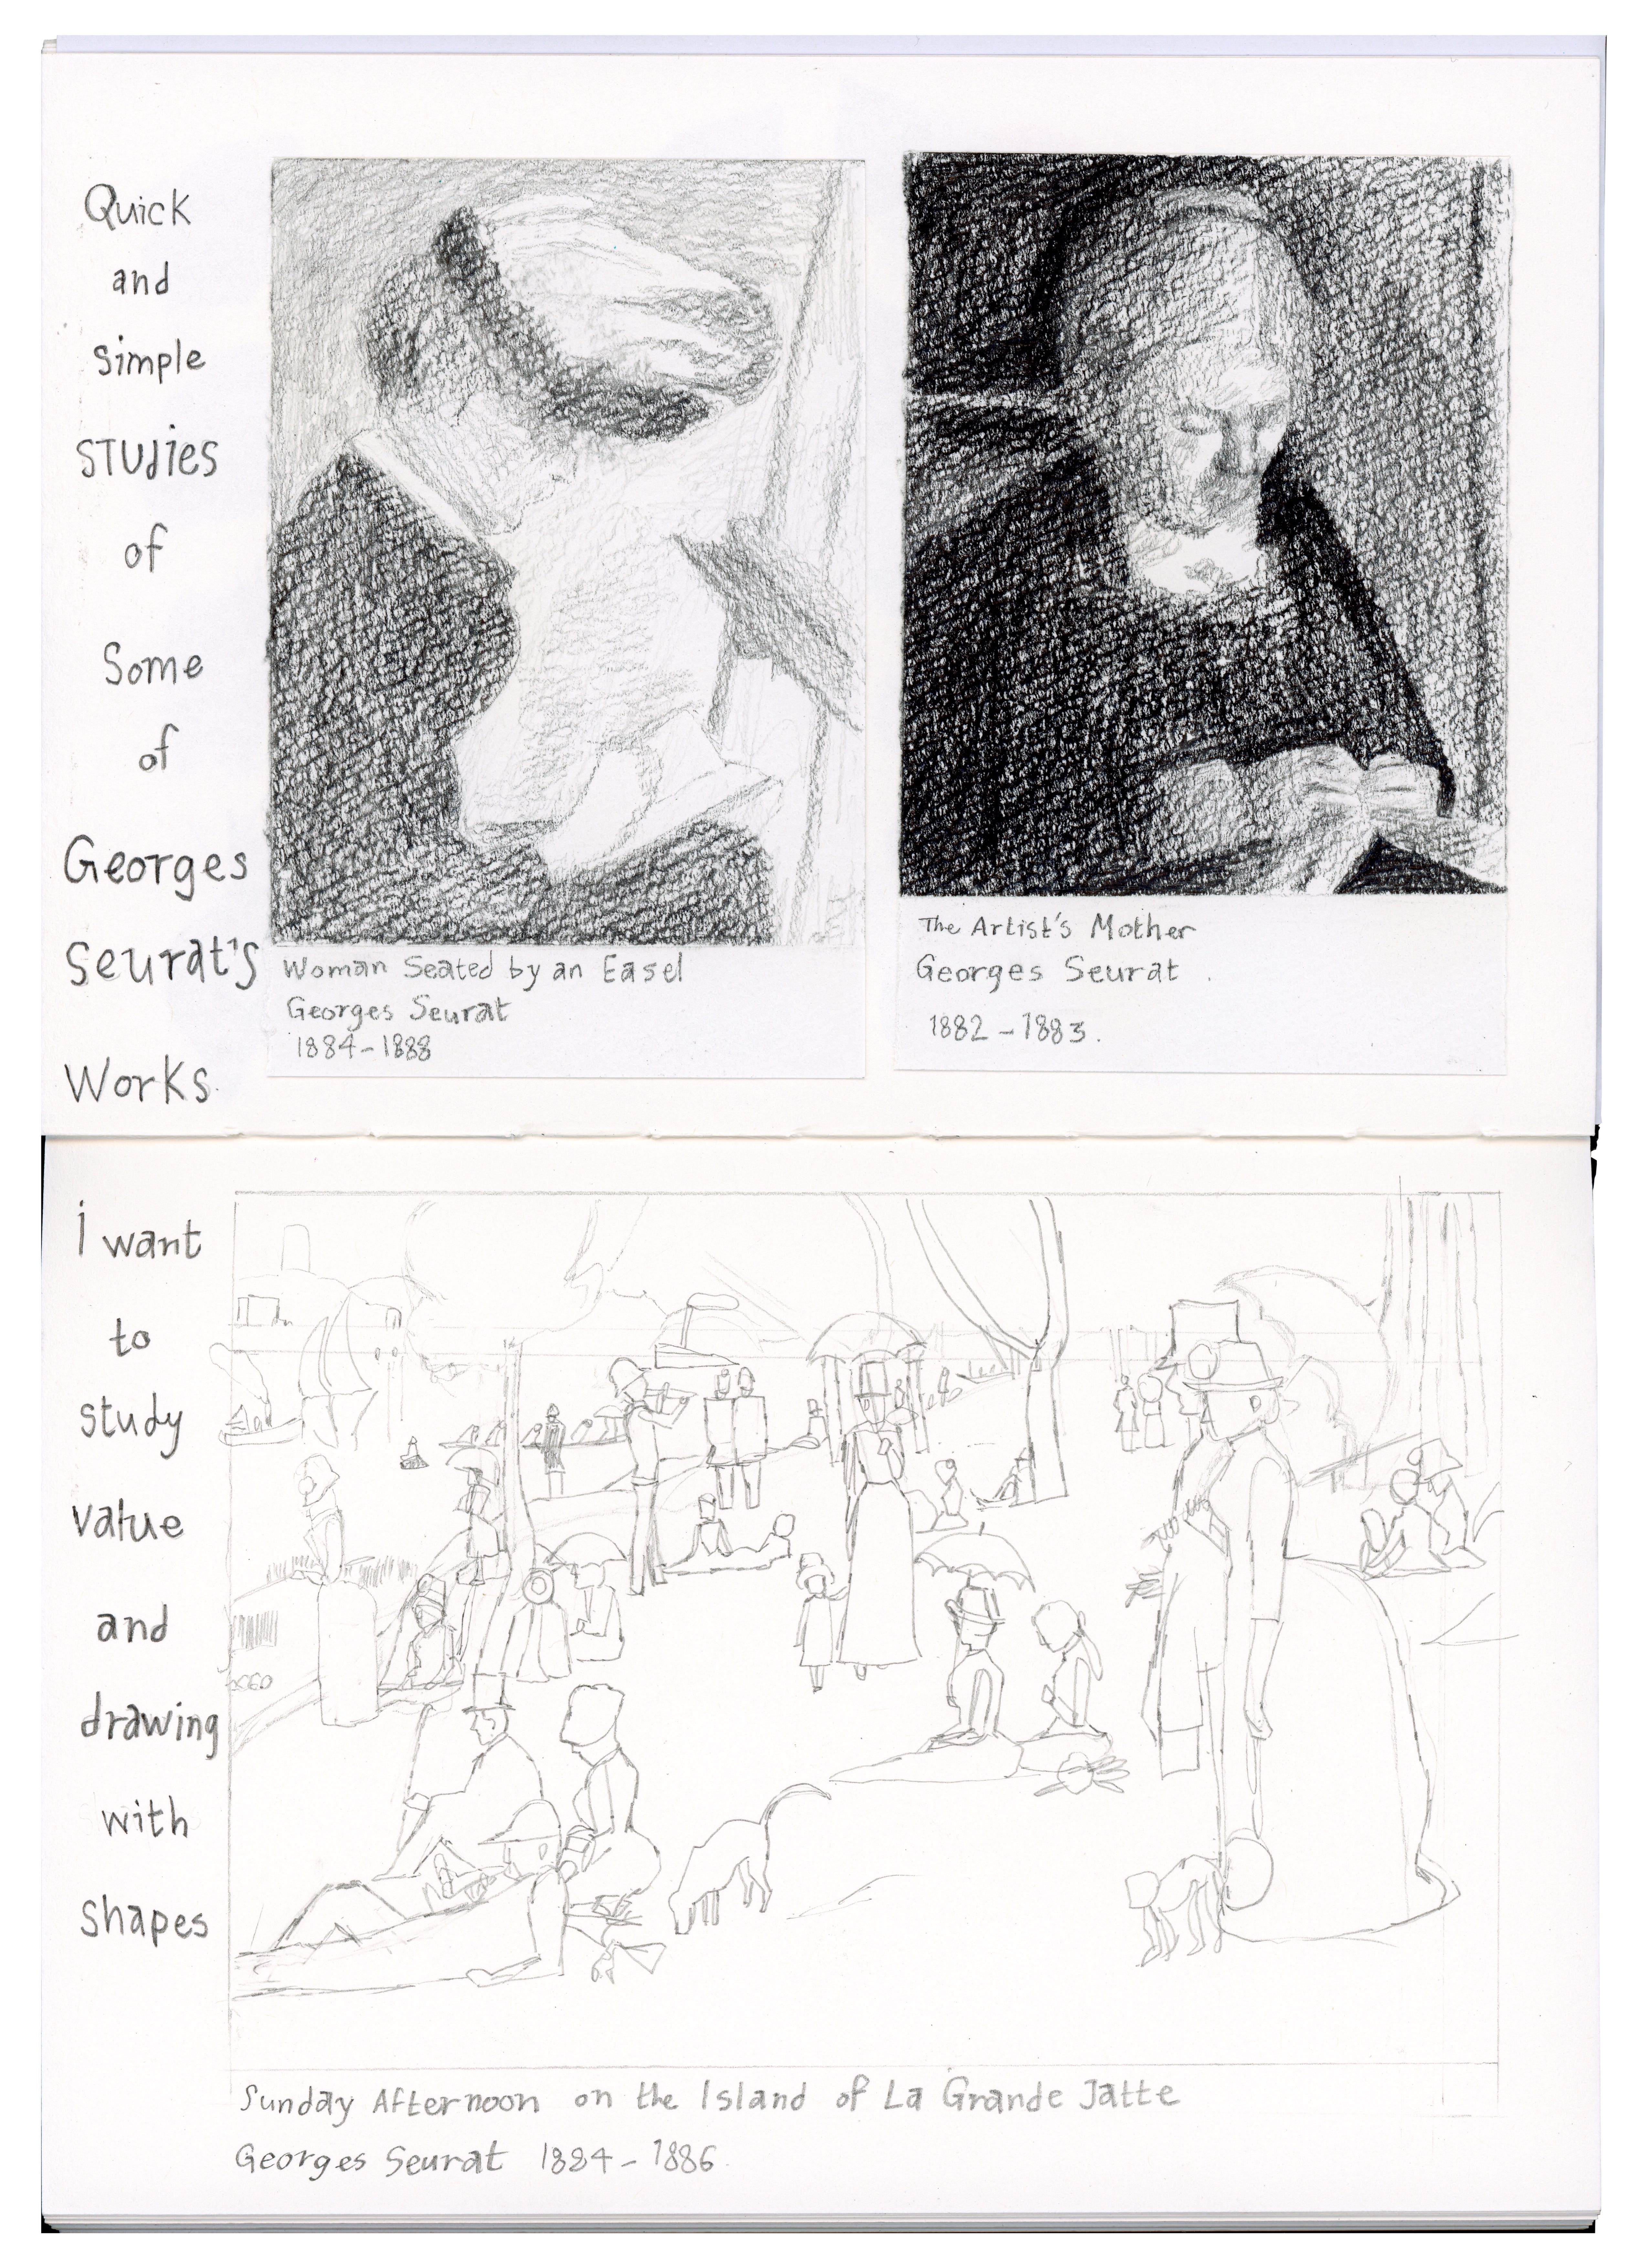 Quick
and
simple
studies
of
Some
of
Georges
Seurat's
Works.
Woman Seated by an Easel
Georges Seurat
1884-1888
The Artist's Mother
Georges Seurat .
1882-1883.
i want
to
study
value
and
drawing
with
shapes
Sunday Afternoon on the Island of La Grande Jatte
Georges Seurat 1884-1886.